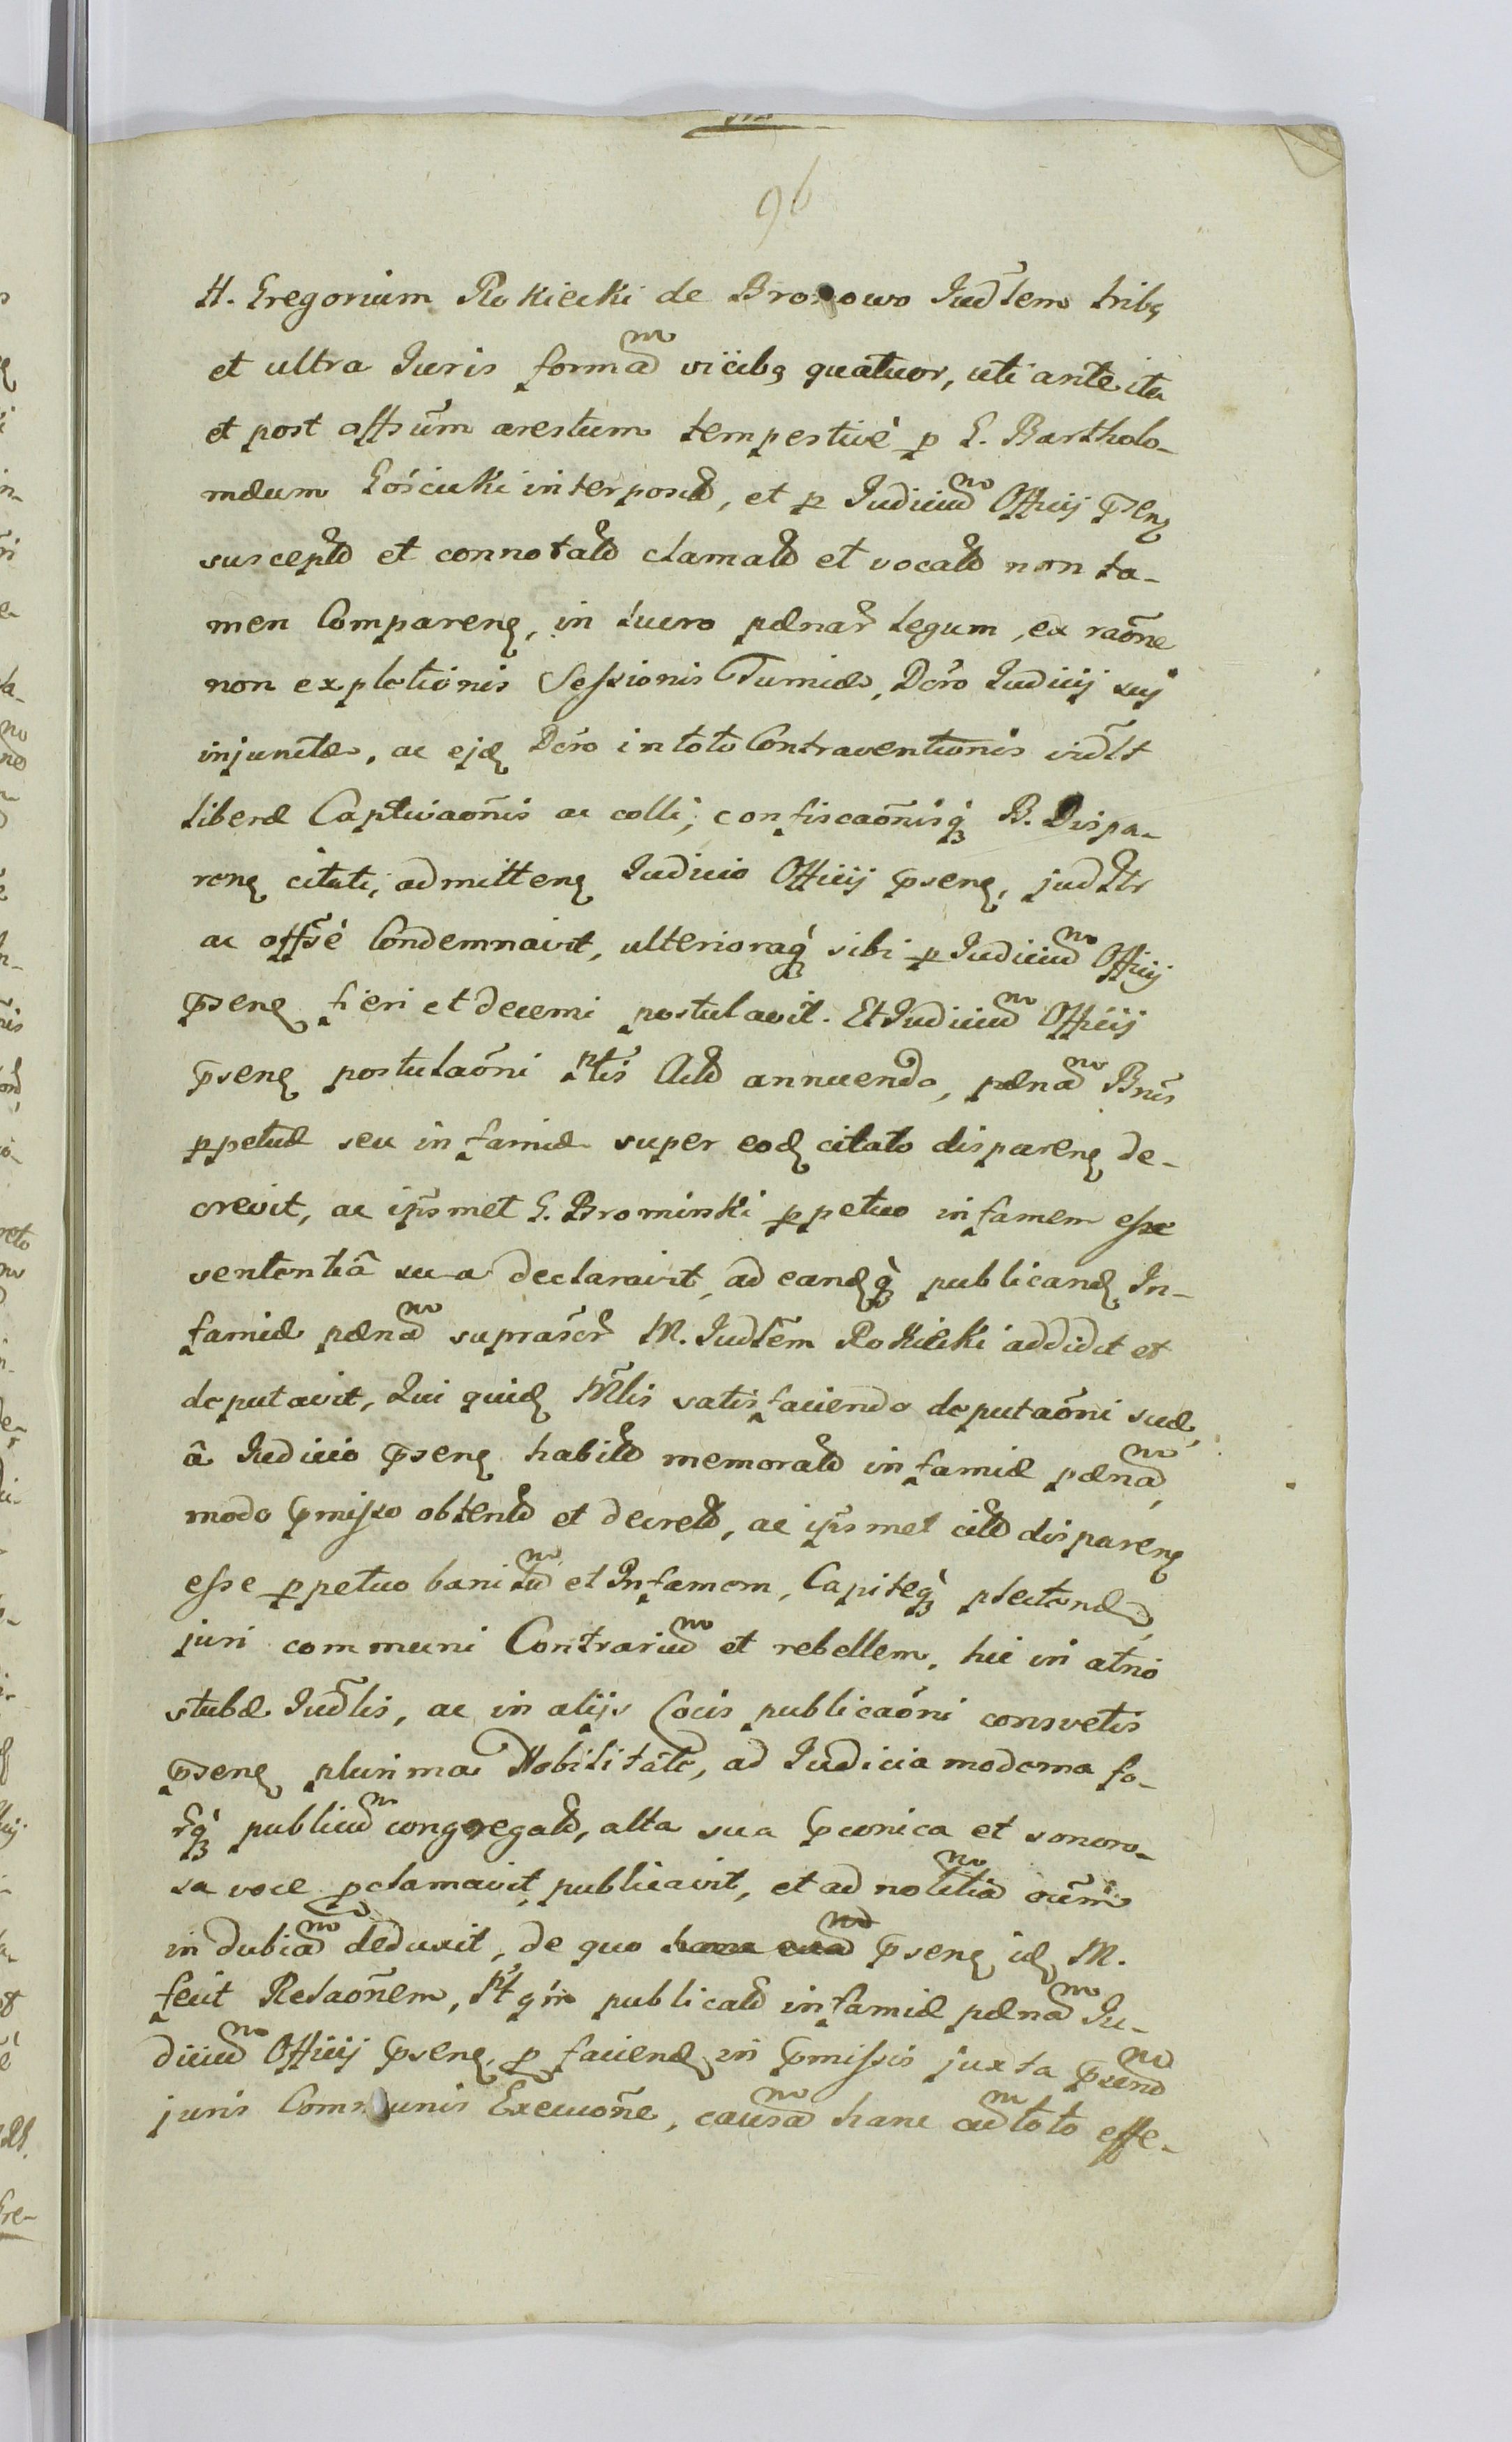 96
H. Gregorium Rokicki de Bronowo Judłem tribꝫ
et ultra Juris formam vicibꝫ quatuor, uti ante ita
et post affsum arestum tempestivè ꝑ G. Bartholo-
mæum Gościcki interposit, et ꝑ Judicium Officij pseng
suscept et connotat clamat et vocat non ta-
men Compareng, in lucro pœnar legum, ex raõne
non expletionis Sessionis Turmidæ, Dcro Judicij sui
injunctæ, ac ejg Dcro in toto Contraventionis vidlt
liberæ Captivaõnis ac colli, confiscaõnisqꝫ B. Dispa-
reng citati, admitteng Judicio Officij pseng, judltr
ac offsé Condemnavit, ulterioraqꝫ sibi ꝑ Judicium Officij
pseng fieri et decerni postulavit. Et Judicium Officij
pseng postulaõni ptis Act annuendo, pœnam Bnis
ꝑpetuæ seu infamiæ super eod citato dispareng de-
crevit, ac ipsmet G. Brominski ꝑpetuo infamem esse
sententiâ sua declaravit, ad eandqꝫ publicand In-
famiæ pœnam suprascr M. Judłem Rokicki addidit et
deputavit, Qui quid Mlis satisfaciendo deputaõni suæ,
â Judicio pseng habit memorat infamiæ pœnam,
modo pmisso obtent et decret, ac ipsmet cit dispareng
esse ꝑpetuo banitum et Infamem, Capiteqꝫ plectend,
juri communi Contrarium et rebellem, hic in atrio
stubæ Judlis, ac in alijs Locis publicaõni consvetis
pseng plurima Nobilitate, ad Judicia moderna fo-
rqꝫ publicum congregat, alta sua pconica et sonoro-
sa voce ꝑclamavit publicavit, et ad notitiam oium
indubiam deduxit, de quo pseng id M.
fecit Relaõnem, Pt qm publicat infamiæ pœnam Ju-
dicium Officij pseng, ꝑ faciend in pmissis juxta psend
juris Communis Execuõne, causam hanc cum toto effe-